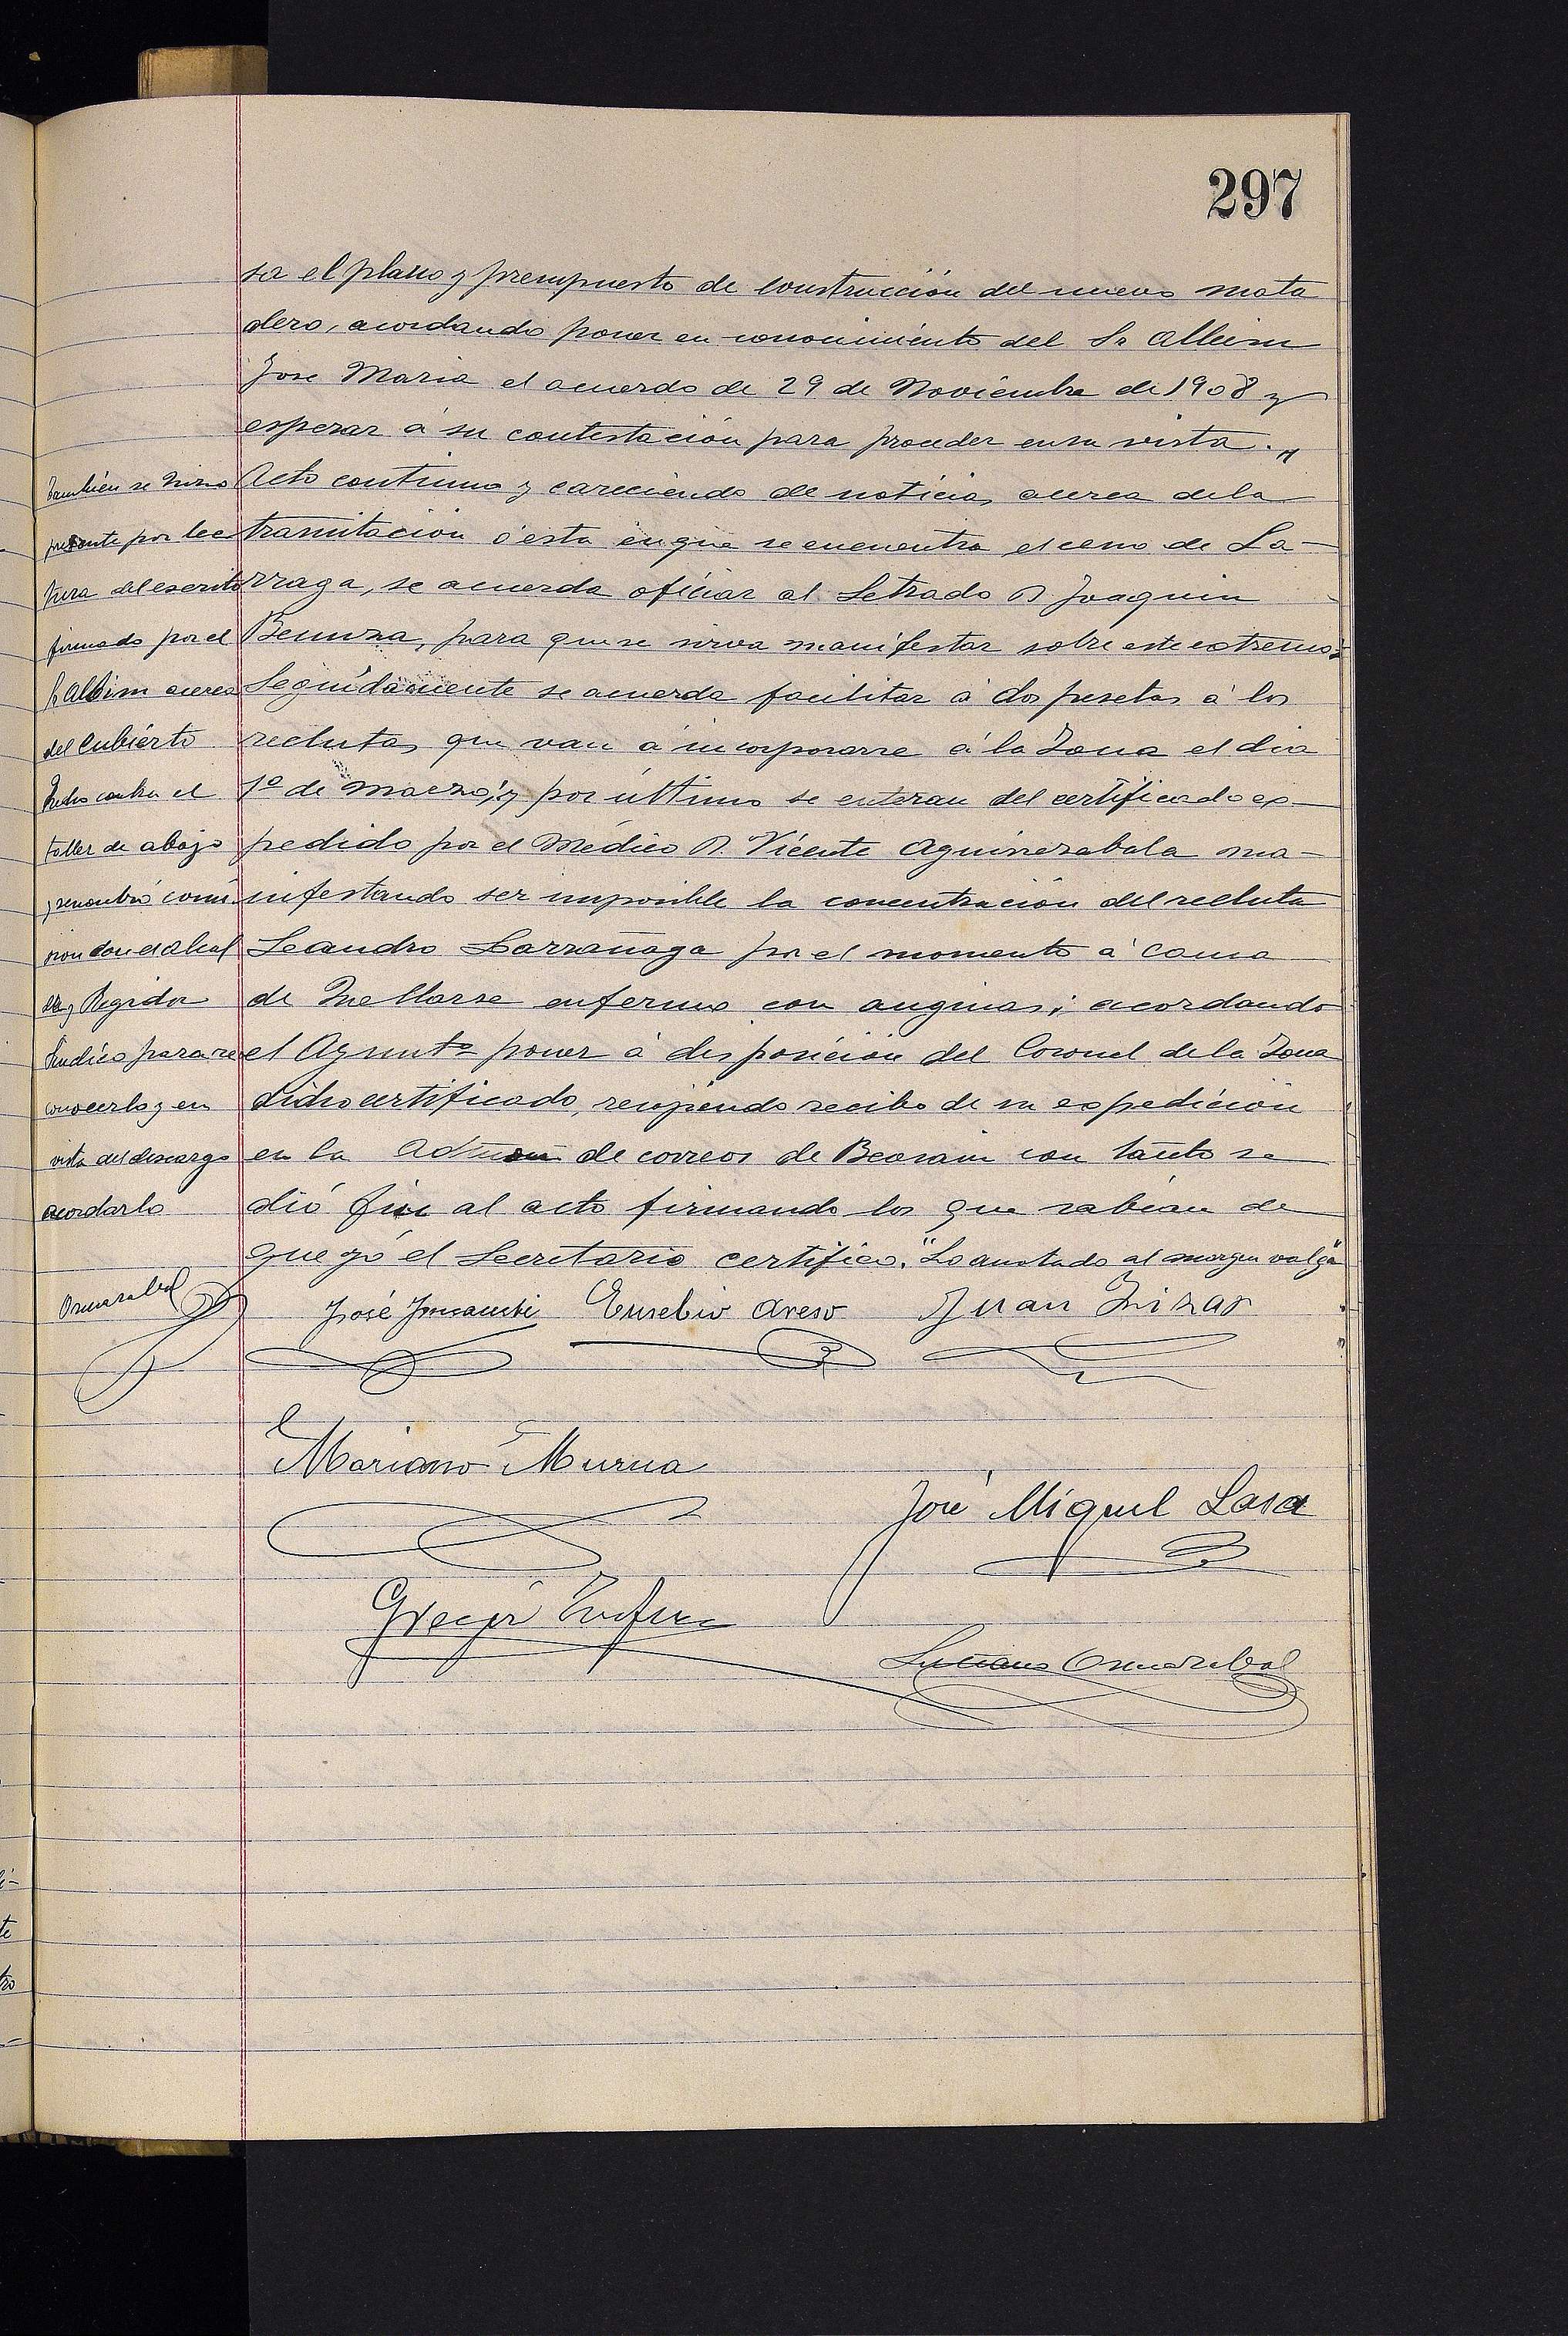 297
sa el plano y presupuesto de construcción del nuevo mata
dero, acordando poner en conocimiento del Sr Albisu
José Maria el acuerdo de 29 de Noviembre de 1908 y
esperar á su contestación para proceder en su vista.„
Acto continuo y careciendo de noticias acerca de la
tramitación ó esta en que se encuentra el censo de La-
rraga, se acuerda oficiar al Letrado D. Joaquin
para que se sirva manifestar sobre este estremo:
Seguidamente se acuerda facilitar á dos pesetas á los
reclutas que van á incorporarse á la Zona el dia
1º de Marzo; y por último se enteran del certificado ex-
pedido por el Médico D. Vicente Aguirrezabala ma-
nifestando ser imposible la concentración del recluta
Leandro Larrañaga por el momento á causa
de hallarse enfermo con anginas; acordando
el Ayuntº poner á disposición del Coronel de la Zona
dicho certificado, recojiendo recibo de su expedición
en la Admon de correos de Beasain con tanto se
dió fin al acto firmando los que sabian de
que yó el Secretario certifico. "Lo anotado al margen valga"
También se hizo
presente por lec
tura del escrito
firmado por el
Sr Albisu acerca
del cubierto
hecho contra el
taller de abajo
y se nombró comi
sion con el Alcal
de y Regidor
Sindico para re
conocerlo y en
vista del descargo
acordarlo
Ormazabal
José Eusebio Areso Juan
Mariano Murua
José Miguel Lasa
Luciano Ormazabal